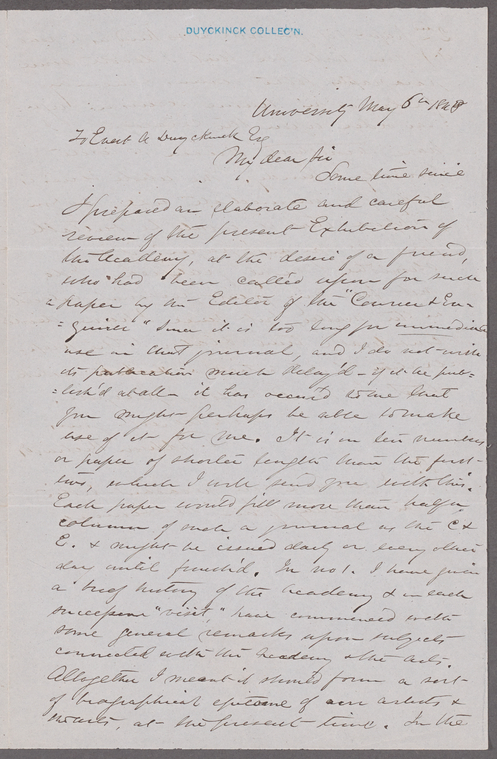 DUYCKINCK COLLEC'N.
University May 6th 1848
To Evert A Duyckinck Esq
My dear Sir
Some time since
I prepared an elaborate and careful
review of the present Exhibition of
the Academy, at the desire of a friend,
who had been called upon for such
paper by the Editor of the "Courier & En=
=quirer" Since it is too long for immediate
use in that journal, and I do not wish
its publication much delay'd - if it be pub=
=lish'd at all - it has occur'd to me that
you might perhaps be able to make
use of it for me. It is in ten numbers
or paper of shorter length than the first
two, which I will send you with this.
Each paper would fill more than half a
column of such a journal as the C &
E. & might be issued daily or every other
day until finish'd. In no 1. I have given
a brief history of the Academy & in each
successive "visit," have commenced with
some general remarks upon subjects
connected with the Academy & the arts.
Altogether I meant it should form a sort
of biographical epitome of our artists &
, at the present time. In the